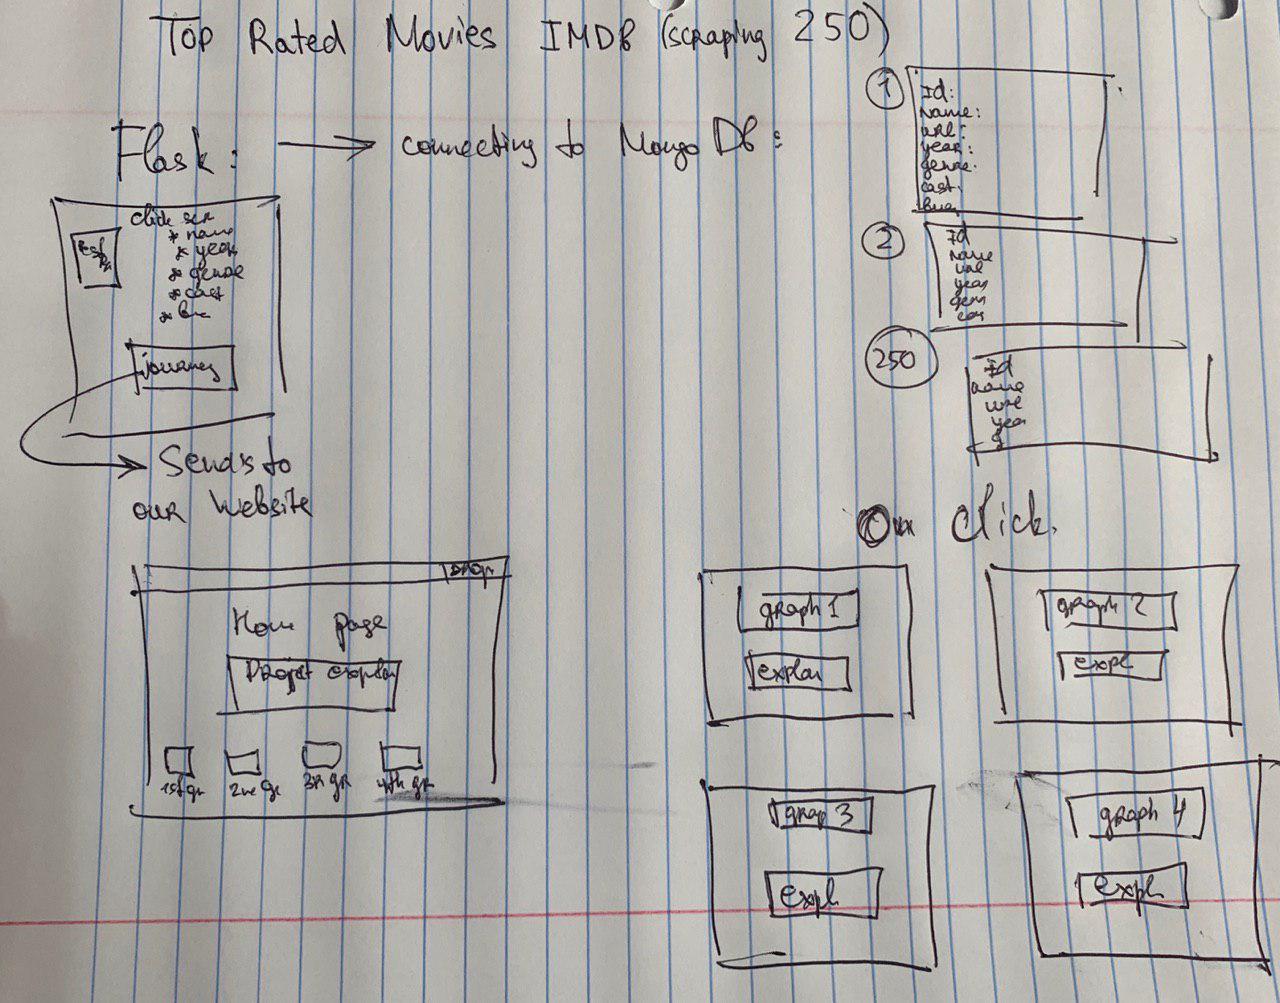 Top Rated Movies IMDB (scraping 250)
Flask: → connecting to Mongo Db:
click scr
* name
* year
* genre
* cast
journey
Sends to
our website
1
Id:
name:
url:
year:
genre:
cast:
2
Id
name
url
year
genr
cas
250
Id
name
url
year
g
On Click.
Home page
Project explan
1st gr
2nd gr
3r gr
4th gr
graph 1
explan
graph 2
expl
grap 3
expl
graph 4
expl